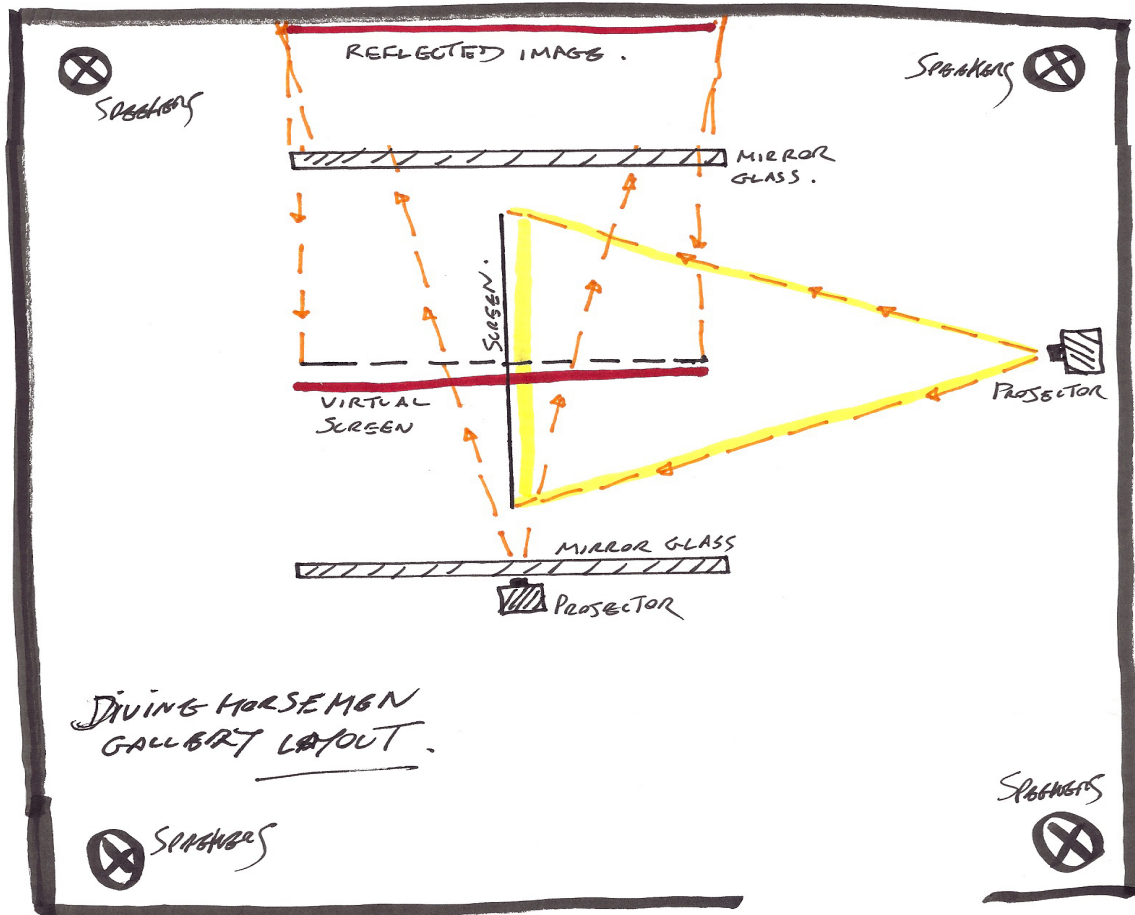 REFLECTED IMAGE.
SPEAKERS
SPEAKERS
MIRROR
GLASS.
SCREEN.
PROJECTOR
VIRTUAL
SCREEN
MIRROR GLASS
PROJECTOR
DIVING HORSEMEN
GALLERY LAYOUT.
SPEAKERS
SPEAKERS